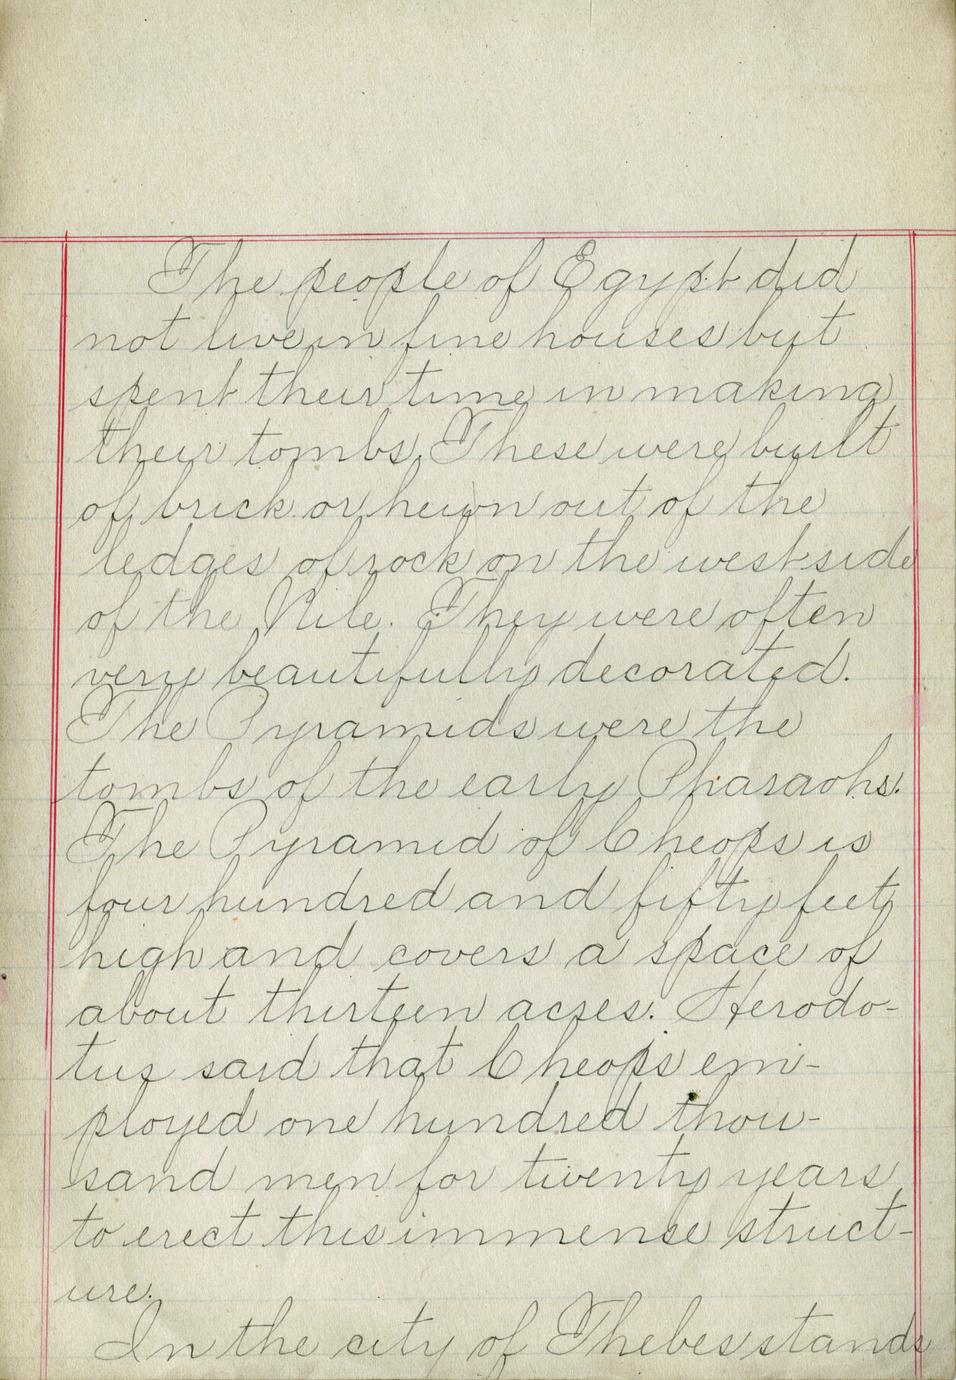 The people of Egypt did
not live in fine houses but
spent their time in making
their tombs. These were built
of brick or hewn out of the
ledges of rock on the west side
of the Nile. They were often
very beautifully decorated.
The Pyramids were the
tombs of the early Pharaohs.
The Pyramid of Cheops is
four hundred and fifty feet
high and covers a space of
about thirteen acres. Herodo-
tus said that Cheops em-
ployed one hundred thou-
sand men for twenty years
to erect this immense struct-
ure.
In the city of Thebes stands